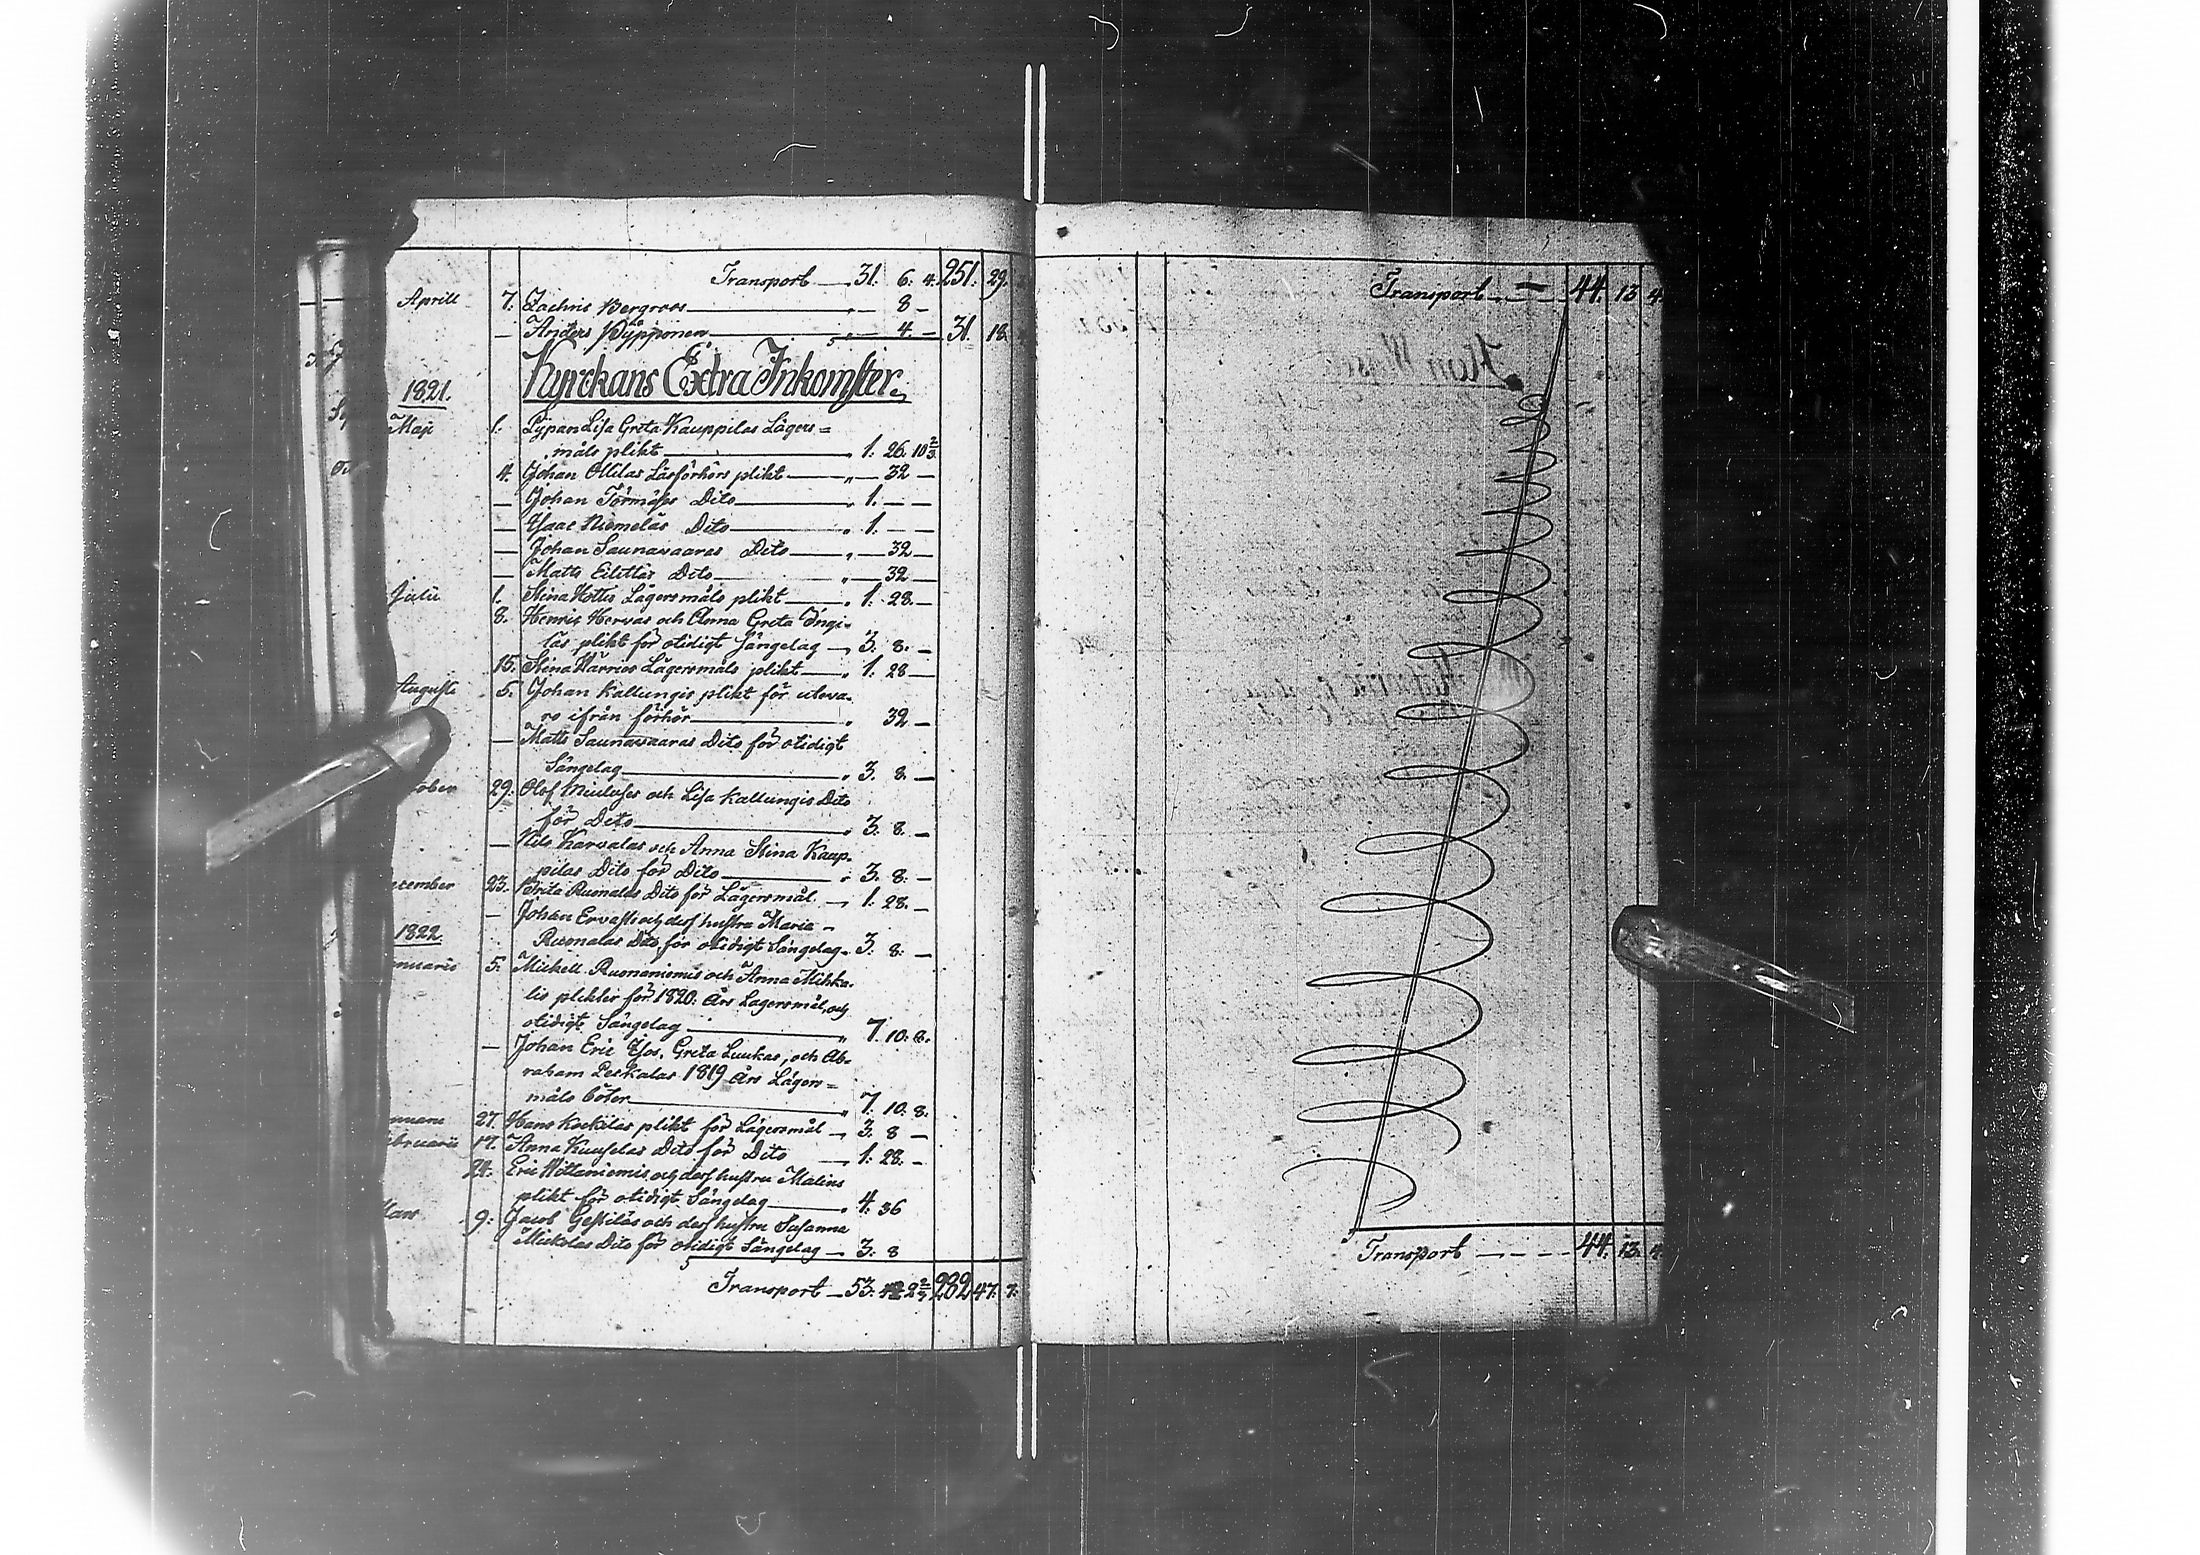 Transport — 31. 6. 4. 251. 29.
Aprill 7. Zachris Bergroos — „ — 8 —
— Anders Pypponen — „ — 4 — 31. 18.
Kyrckans Extra Inkomster.
1821.
Maji 1. Pypan Lisa Greta Kauppilas Lägers=
måls plikt — „ 1. 26. 10 2/3
4. Johan Ollilas Läsförhörs plikt — „ — 32 —
— Johan Törmäses Dito — „ 1. — —
— Isaac Niemeläs Dito — „ 1. — —
— Johan Saunavaaras Dito — „ — 32 —
— Matts Dito — „ — 32 —
Julii 1. Stina Lägersmåls plikt — „ 1. 28. —
8. Henric Hervas och Anna Greta Ingi-
läs plikt för otidigt Sängelag — 3. 8. —
15. Stina Lägersmåls plikt — „ 1. 28 —
Augusti 5. Johan Kallungis plikt för uteva-
ro ifrån förhör — „ 32 —
— Matts Saunavaaras Dito för otidigt
Sängelag — „ 3. 8. —
tober 29. Olof och Lisa Kallungis Dito
för Dito — „ 3. 8. —
— Nils Karvalas och Anna Stina Kaup-
pilas Dito för Dito — „ 3. 8. —
ecember 23. Brita Ruonalas Dito för Lägersmål — „ 1. 28. —
— Johan Ervasti och dess hustru Maria
Ruonalas Dito för otidigt Sängelag „ 3. 8. —
1822
nuarii 5. Mickell Ruonaniemis och Anna Mihka-
lis plikter för 1820. Års Lägersmål, och
otidigt Sängelag — „ 7. 10. 8.
— Johan Eric Greta Luukas, och Ab-
raham Perkalas 1819 Års Lägers=
måls böter — „ 7. 10. 8.
nuarii 27. Hans Kockilas plikt för Lägersmål — „ 3. 8 —
ebruarii 17. Anna Kuuselas Dito för Dito — 1. 28. —
24. Eric och dess hustru Malins
plikt för otidigt Sängelag — „ 4. 36
Mars 9. Jacob och dess hustru Susanna
Dito för otidigt Sängelag — „ 3. 8
Transport — 53. 2 2/3 282 47. 7.
Transport — 44. 13 4.
Transport — — — 44. 13. 4.